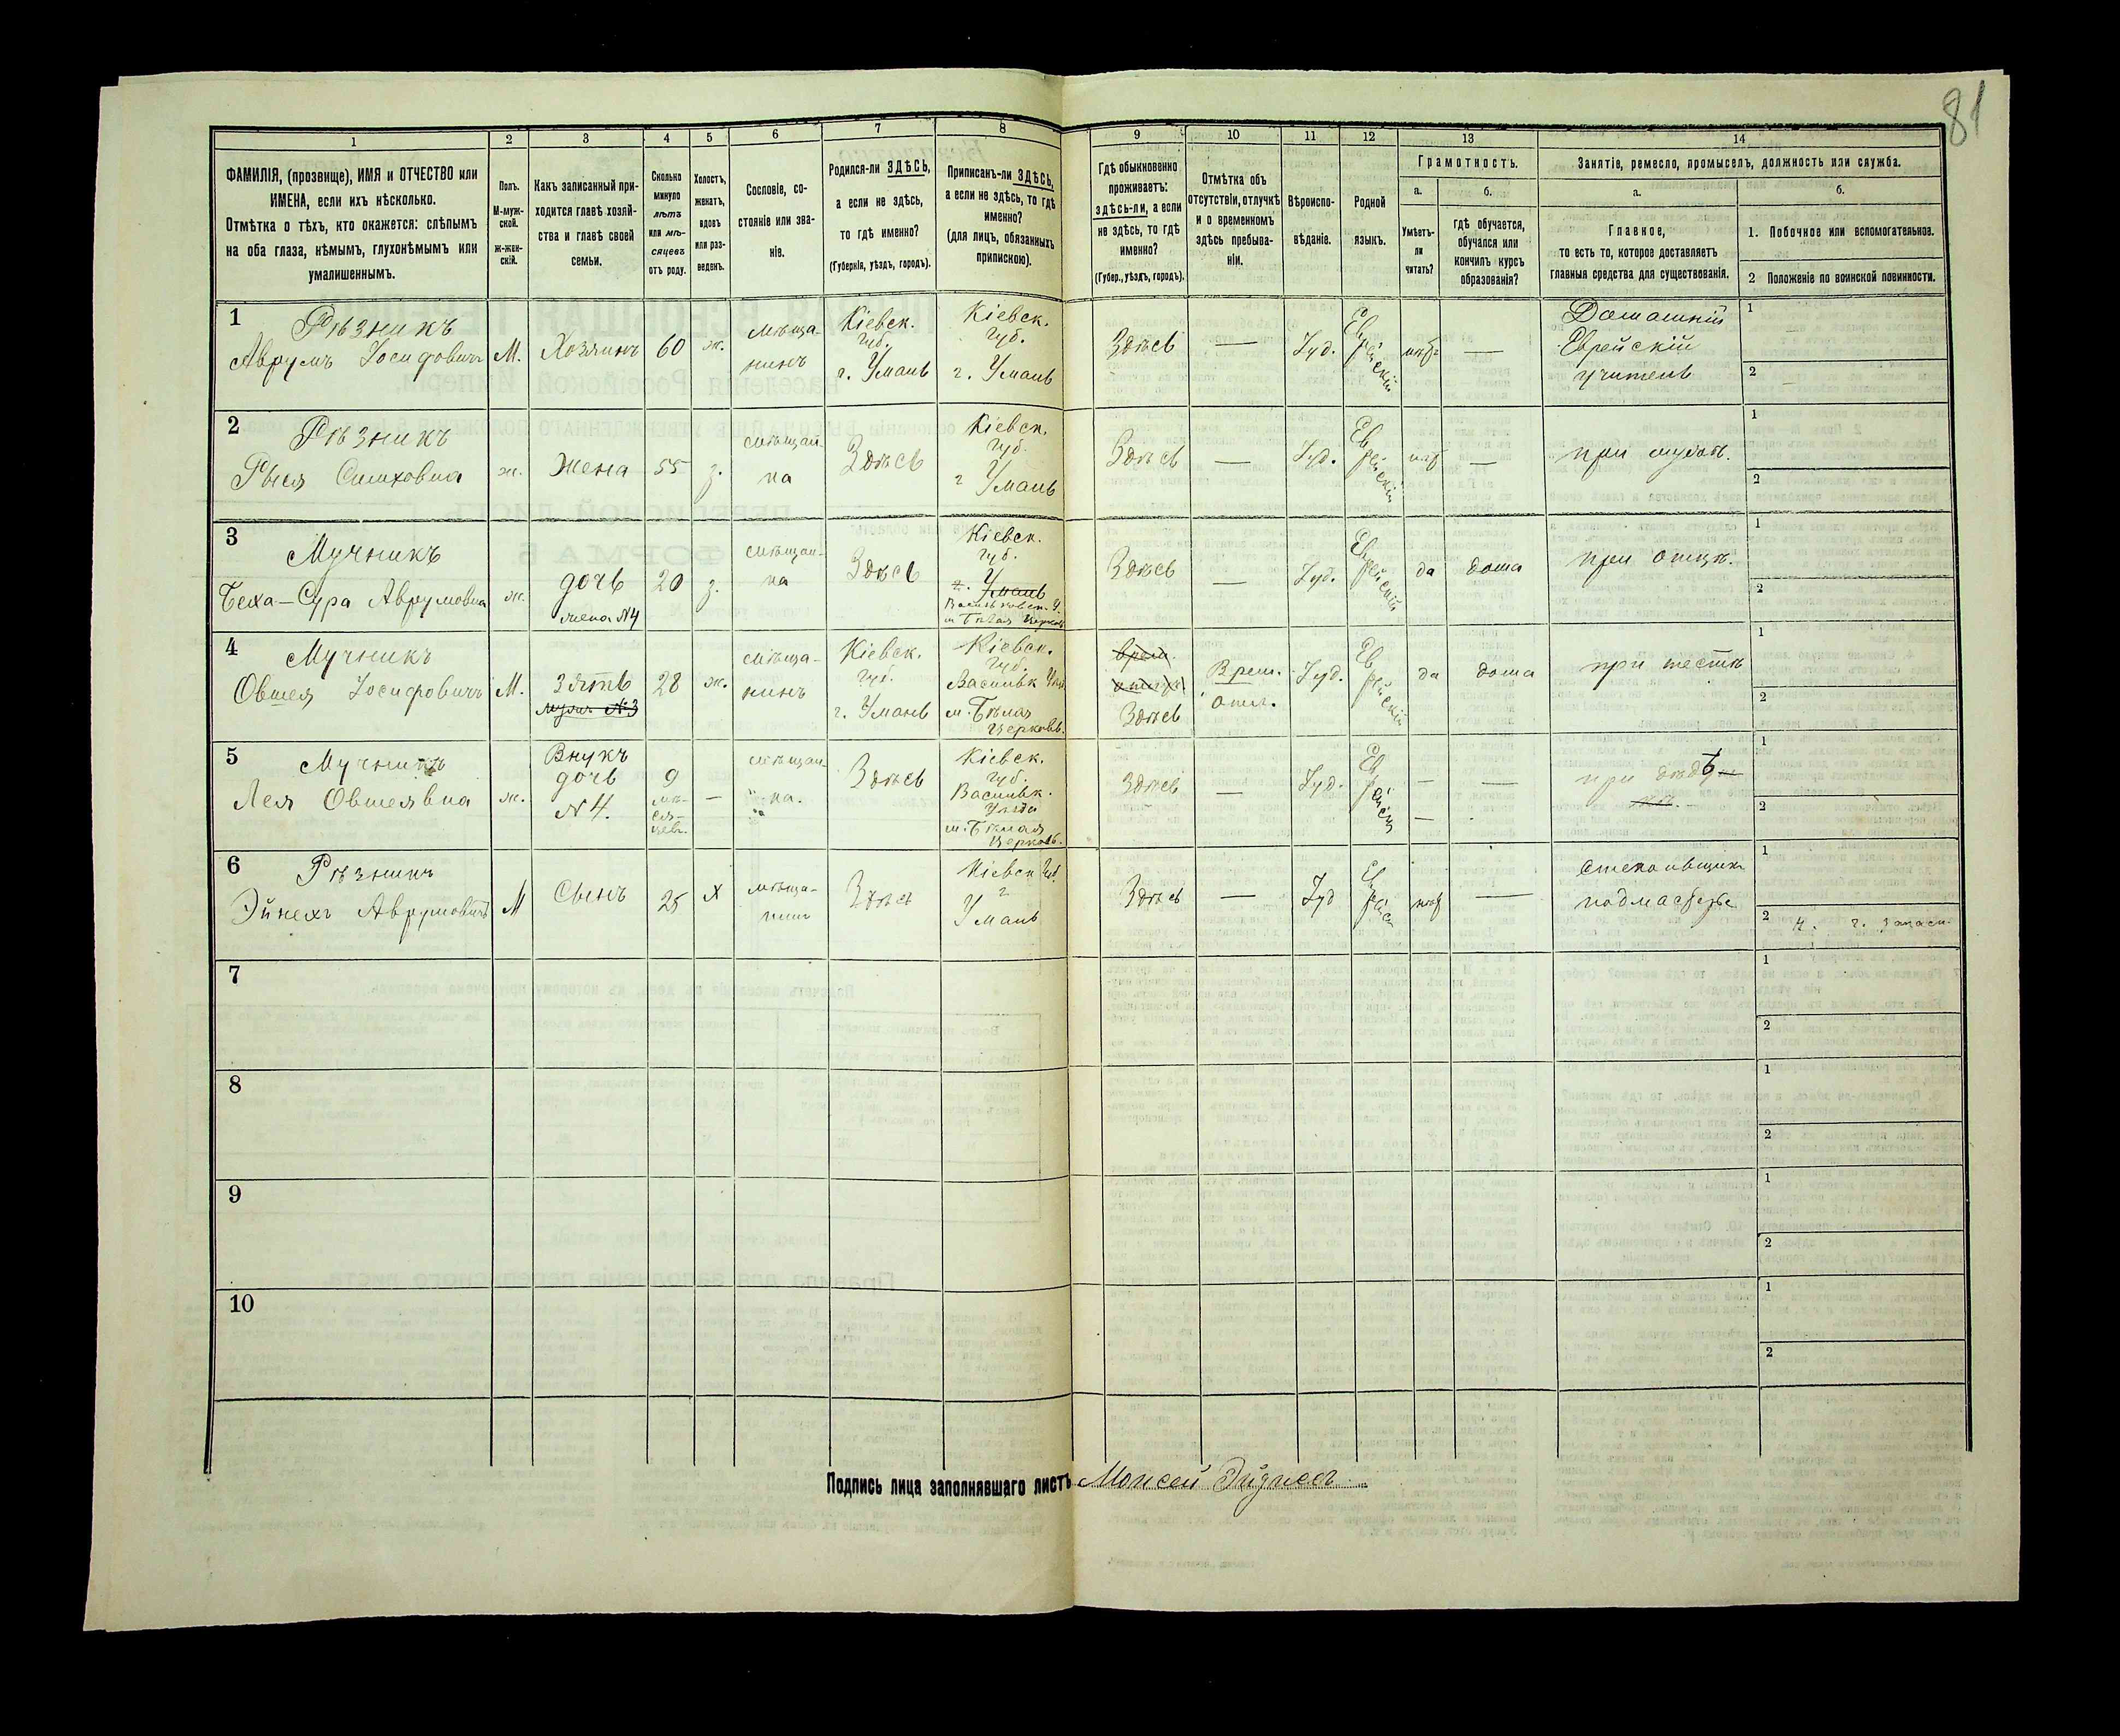 81
1
2
3
4
5
6
7
8
9
10
11
12
13
14
ФАМИЛІЯ, (прозвище), ИМЯ и ОТЧЕСТВО или
ИМЕНА, если ихъ нѣсколько.
Отмѣтка о тѣхъ, кто окажется: слѣпымъ
на оба глаза, нѣмымъ, глухонѣмымъ или
умалишеннымъ.
Полъ.
М-муж-
ской.
ж-жен-
скій.
Какъ записанный при-
ходится главѣ хозяй-
ства и главѣ своей
семьи.
Сколько
минуло
лѣтъ
или мѣ-
сяцевъ
отъ роду.
Холостъ,
женатъ,
вдовъ
или раз-
веденъ.
Сословіе, со-
стояніе или зва-
ніе.
Родился-ли ЗДѢСЬ,
а если не здѣсь,
то гдѣ именно?
(Губернія, уѣздъ, городъ).
Приписанъ-ли ЗДѢСЬ,
а если не здѣсь, то гдѣ
именно?
(для лицъ, обязанныхъ
припискою).
Гдѣ обыкновенно
проживаетъ:
здѣсь-ли, а если
не здѣсь, то гдѣ
именно?
(Губер., уѣздъ, городъ).
Отмѣтка объ
отсутствіи, отлучкѣ
и о временномъ
здѣсь пребыва-
ніи.
Вѣроиспо-
вѣданіе.
Родной
языкъ.
Грамотность.
а.
Умѣетъ-
ли
читать?
б.
гдѣ обучается,
обучался или
кончилъ курсъ
образованія?
Занятіе, ремесло, промыселъ, должность или служба.
а.
Главное,
то есть то, которое доставляетъ
главныя средства для существованія.
б.
1. Побочное или вспомогательное.
2 Положеніе по воинской повинности.
1
Рѣзникъ
Аврумъ Іосифовичъ
М.
Хозяинъ
60
ж.
мѣща-
нинъ
Кіевск.
губ.
г. Умань
Кіевск.
губ.
г. Умань
Здѣсь
—
Іуд.
Еврейскій
—
Домашній
Еврейскій
учитель
1
2
2
Рѣзникъ
Рыся Симховна
ж.
Жена
55
з.
мѣщан-
ка
Здѣсь
Кіевск.
губ.
г Умань
Здѣсь
—
Іуд.
Еврейскій
—
при мужѣ.
1
2
3
Мучникъ
Беха-Сура Аврумовна
ж.
дочь
жена №4
20
з.
мѣщан-
ка
Здѣсь
Кіевск.
губ.
г. Умань
Васильковск. у.
м. Бѣлая Церковь
Здѣсь
—
Іуд.
Еврейскій
да
дома
при отцѣ.
1
2
4
Мучникъ
Овшея Іосифовичъ
М.
Зять
мужъ №3
28
ж.
мѣща-
нинъ
Кіевск.
губ.
г. Умань
Кіевск.
губ.
Васильк
м. Бѣлая
Церковь.
врем.
Здѣсь
Врем.
отл.
Іуд.
Еврейскій
да
дома
при тестѣ
1
2
5
Мучникъ
Лея Овшеявна
ж.
Внукъ
дочь
№4.
9
мѣ-
ся-
цевъ.
—
мѣщан-
ка.
Здѣсь
Кіевск.
губ.
Васильк.
м. Бѣлая
Церковь.
Здѣсь
—
Іуд.
Еврейск
—
—
при дѣдѣ
1
2
6
Рѣзникъ
Эйнехъ Аврумовичъ
М
Сынъ
25
Х
мѣща-
нинъ
Здѣсь
Кіевск губ.
г
Умань
Здѣсь
—
Іуд
Еврейск
—
подмастерье
1
2
7
1
2
8
1
2
9
1
2
10
1
2
Подпись лица заполнявшаго листъ Моисей